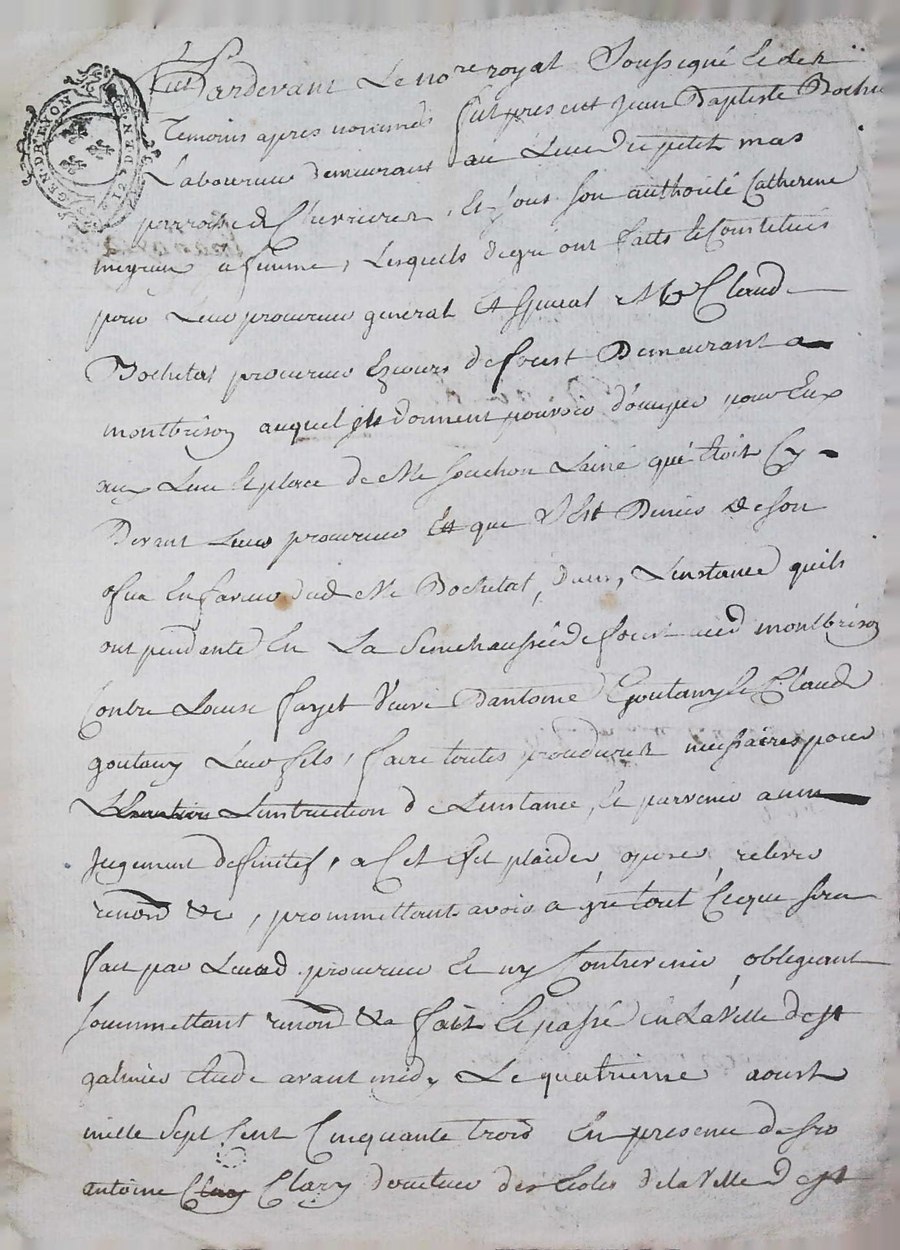 GEN. DE LYON
Pardevant Le no.re royal Soussigné et des
Temoins apres nommés fut present Jean Baptiste Boche
Laboureur demeurant au Lieu du petit mas
parroisse de , Et sous son authorité Catherine
sa femme, Lesquels de gré ont faits et Constitués
pour Leur procureur general et special Me Claud
Bochetat procureur Es cours de forest Demeurant a
montbrison auquel ils donnent pouvoir d'occuper pour Eux
au Lieu et place de Me souchon Lainé qui Etoit Cy
Devant Leur procureur Et qui s'Est Demis de son
office En faveur dud Me Bochetat, dans, Linstance quils
ont pendante En La Senechaussée de forest aud montbrison
Contre Louise fayet Veuve Dantoine Goutany et Claud
goutany Leur fils, faire toutes procedures necessaires pour
Linstruction de Linstance, et parvenir a un
Jugement definitif, a Cet effet plaider, oposer, relever
renond &c, prommettants avoir a gré tout Ceque sera
fait par Leurd procureur Et ny Contrevenir, obligeant
soummettant renond &a fait Et passé en La Ville de st
galmier Etude avant midy Le quatrieme aoust
mille Sept Cent Cinquante trois En presence de sr
antoine Clary docteur des Ecoles de la Ville de st